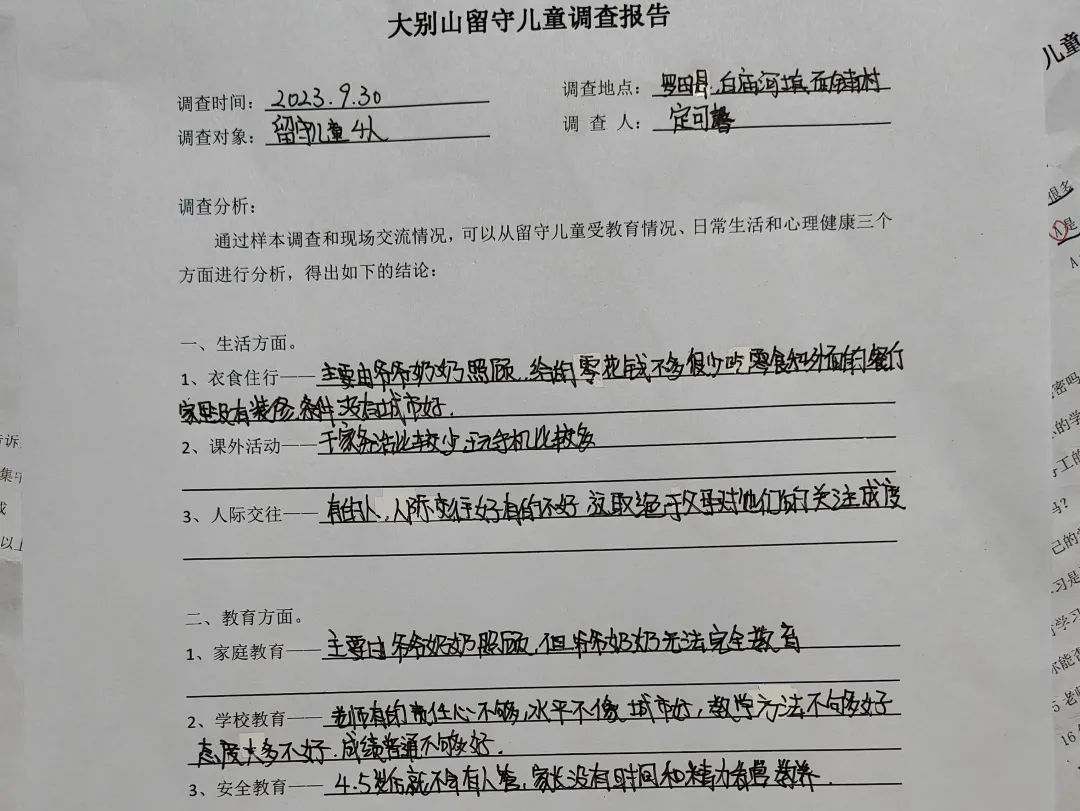 大别山留守儿童调查报告
调查时间: 2023.9.30 调查地点: 罗田县.白庙河镇
调查对象: 留守儿童4人 调 查 人: 定可馨
调查分析:
通过样本调查和现场交流情况,可以从留守儿童受教育情况、日常生活和心理健康三个
方面进行分析,得出如下的结论:
一、生活方面。
1、衣食住行——主要由爷爷奶奶照顾.给的零花钱不多很少吃零食和外面的餐厅
家里没有装修,条件没有城市好.
2、课外活动——干家务活比较少玩手机比较多
3、人际交往——有的人,人际交往好有的不好 取绝于父母对他们的关注成度
二、教育方面。
1、家庭教育——主要由爷爷奶奶照顾,但爷爷奶奶无法完全教育
2、学校教育——老师有的责任心不够,水平不像城市好,教学方法不够好
态度大多不好.成绩普通不够好.
3、安全教育——4.5岁后就不会有人管,家长没有时间和精力 教养.
儿童
很多
A 是
A
密吗
的学
工的
吗?
己的
习是
学习
你能否
5 老师
16
告诉
集中
或
以上